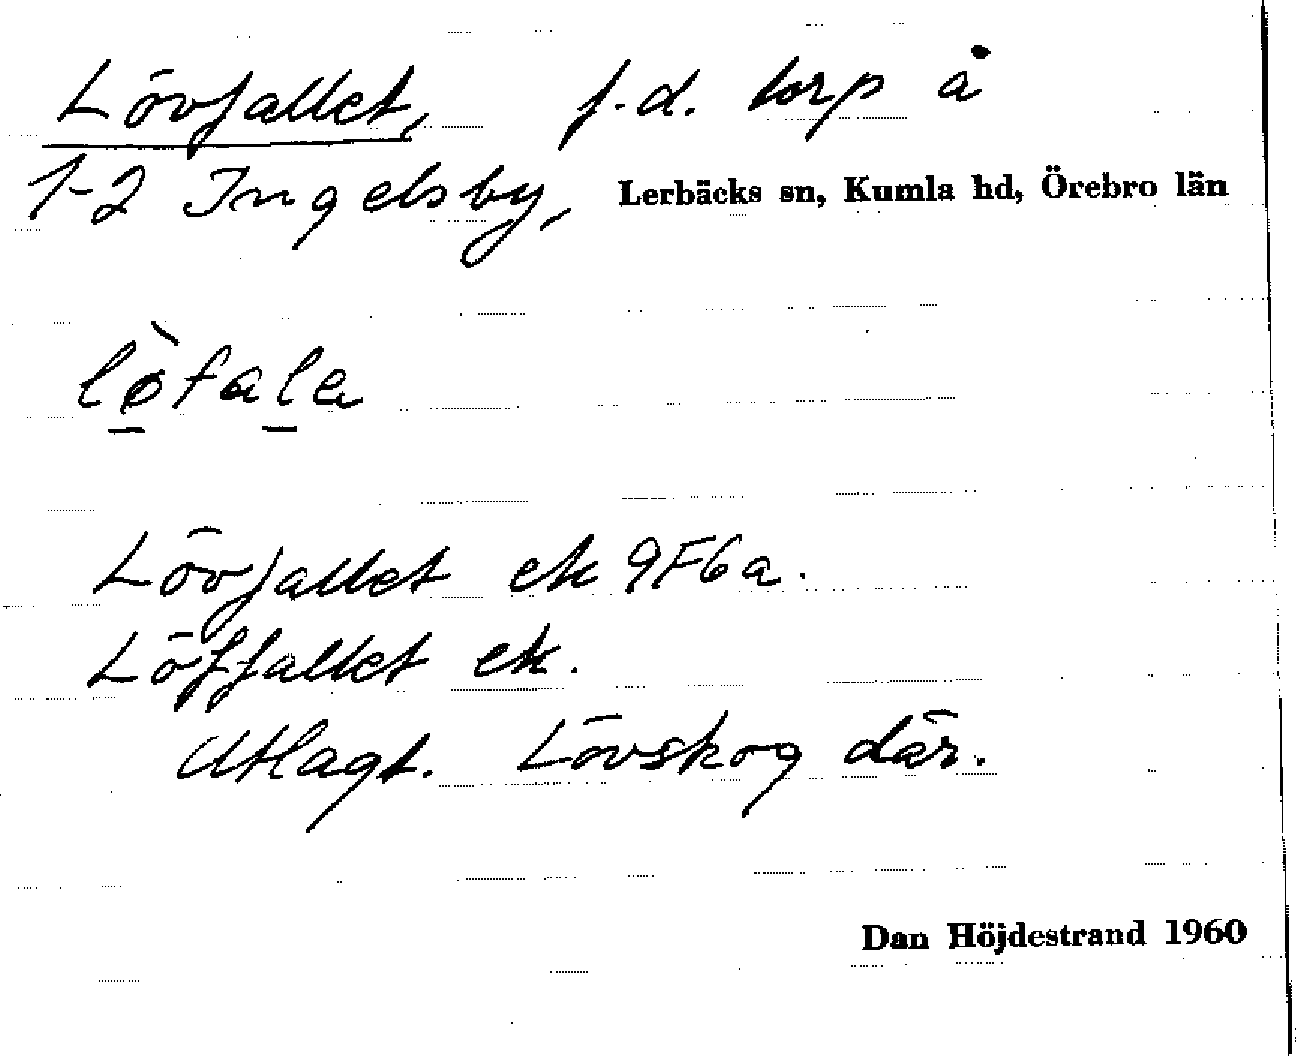 Lövfallet, f.d. torp å
1-2 Ingelsby, Lerbäcks sn, Kumla hd, Örebro län
lø̀fala
Lövfallet ek 9F6a.
Löffallet ek.
Utlagt. Lövskog där.
Dan Höjdestrand 1960